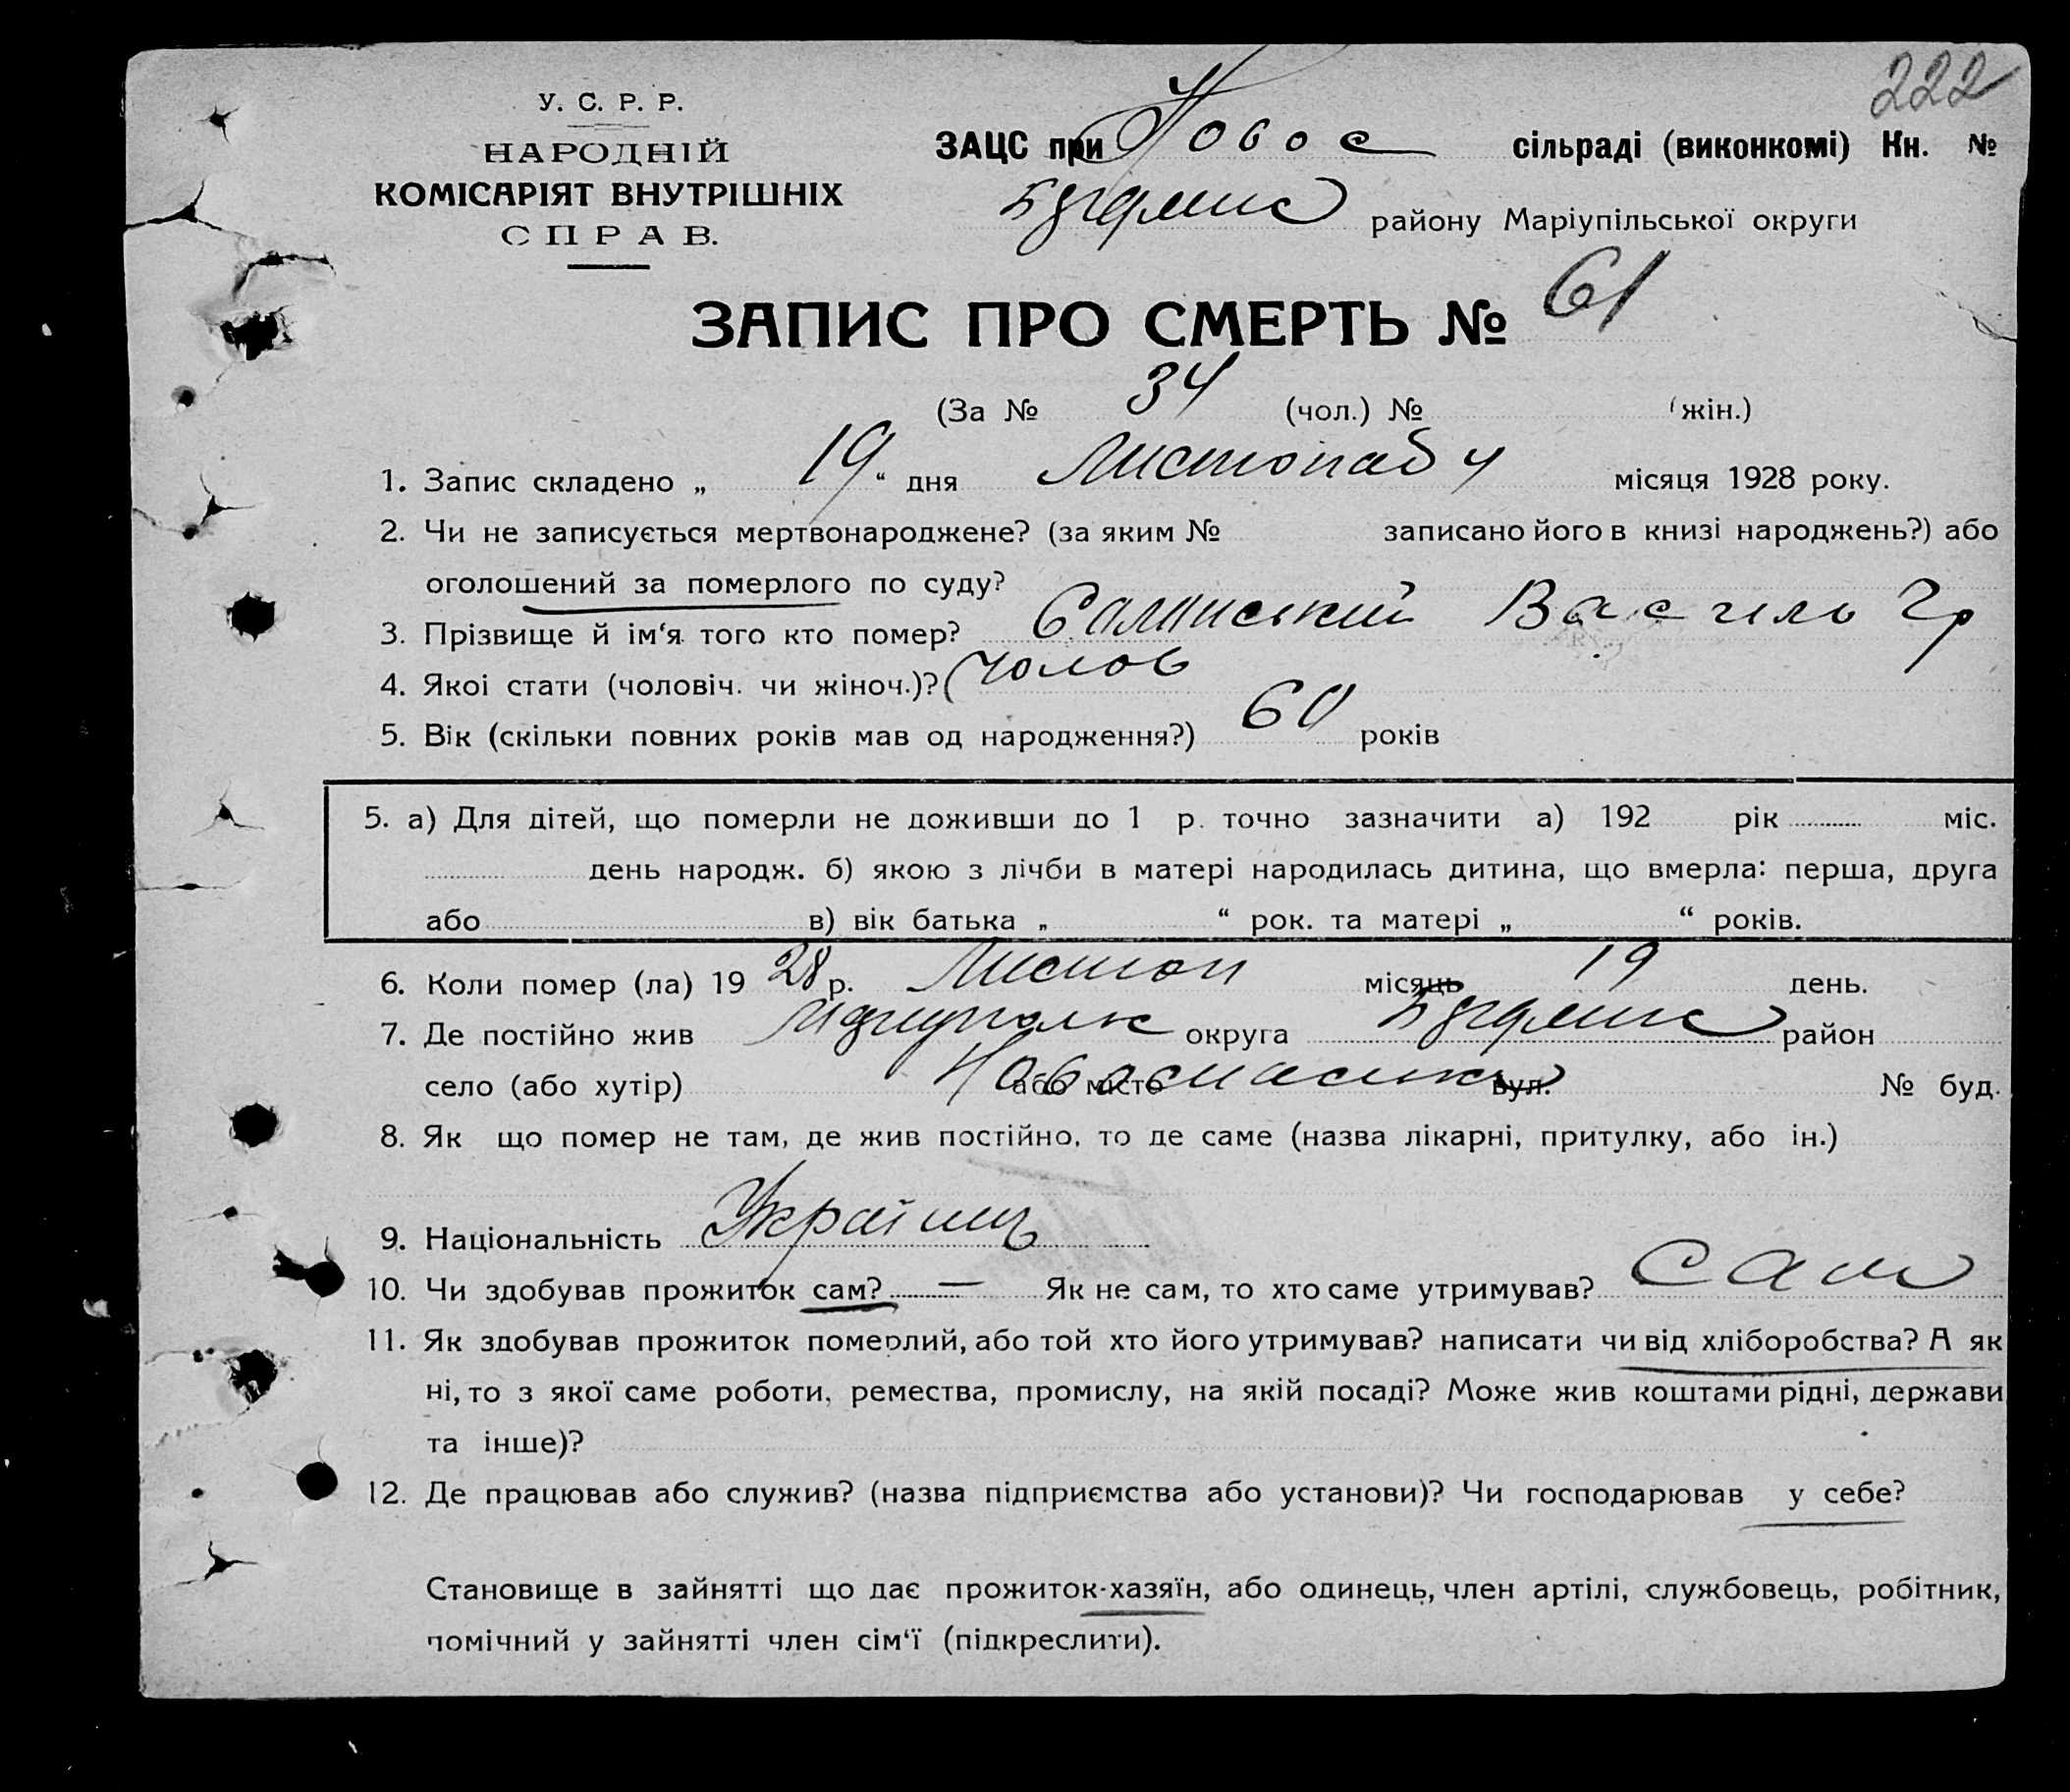 222
У. С. Р. Р.
НАРОДНІЙ
КОМІСАРІЯТ ВНУТРІШНІХ
СПРАВ.
ЗАЦС при Новос сільраді (виконкомі) Кн. №
району Маріупільської округи
ЗАПИС ПРО СМЕРТЬ № 61
(За № 34 (чол.) № (жін.)
1. Запис складено „ 19 “ дня Листопаду місяця 1928 року.
2. Чи не записується мертвонароджене? (за яким № записано його в книзі народжень?) або
оголошений за померлого по суду?
3. Прізвище й ім‘я того кто помер? Василь Гр
4. Якоі стати (чоловіч. чи жіноч.)? Чолов
5. Вік (скільки повних років мав од народження?) 60 років
5. а) Для дітей, що померли не доживши до 1 р. точно зазначити а) 192 рік міс.
день народж. б) якою з лічби в матері народилась дитина, що вмерла: перша, друга
або в) вік батька „ “ рок. та матері „ “ років.
6. Коли помер (ла) 19 28 р. Листоп місяць 19 день.
7. Де постійно жив округа район
село (або хутір) або місто вул. № буд.
8. Як що помер не там, де жив постійно, то де саме (назва лікарні, притулку, або ін.)
9. Національність Українець
10. Чи здобував прожиток сам? — Як не сам, то хто саме утримував? Сам
11. Як здобував прожиток померлий, або той хто його утримував? написати чи від хліборобства? А як
ні, то з якої саме роботи, ремества, промислу, на якій посаді? Може жив коштами рідні, держави
та інше)?
12. Де працював або служив? (назва підприємства або установи)? Чи господарював у себе?
Становище в зайнятті що дає прожиток-хазяїн, або одинець, член артілі, службовець, робітник,
помічний у зайнятті член сім‘ї (підкреслити).